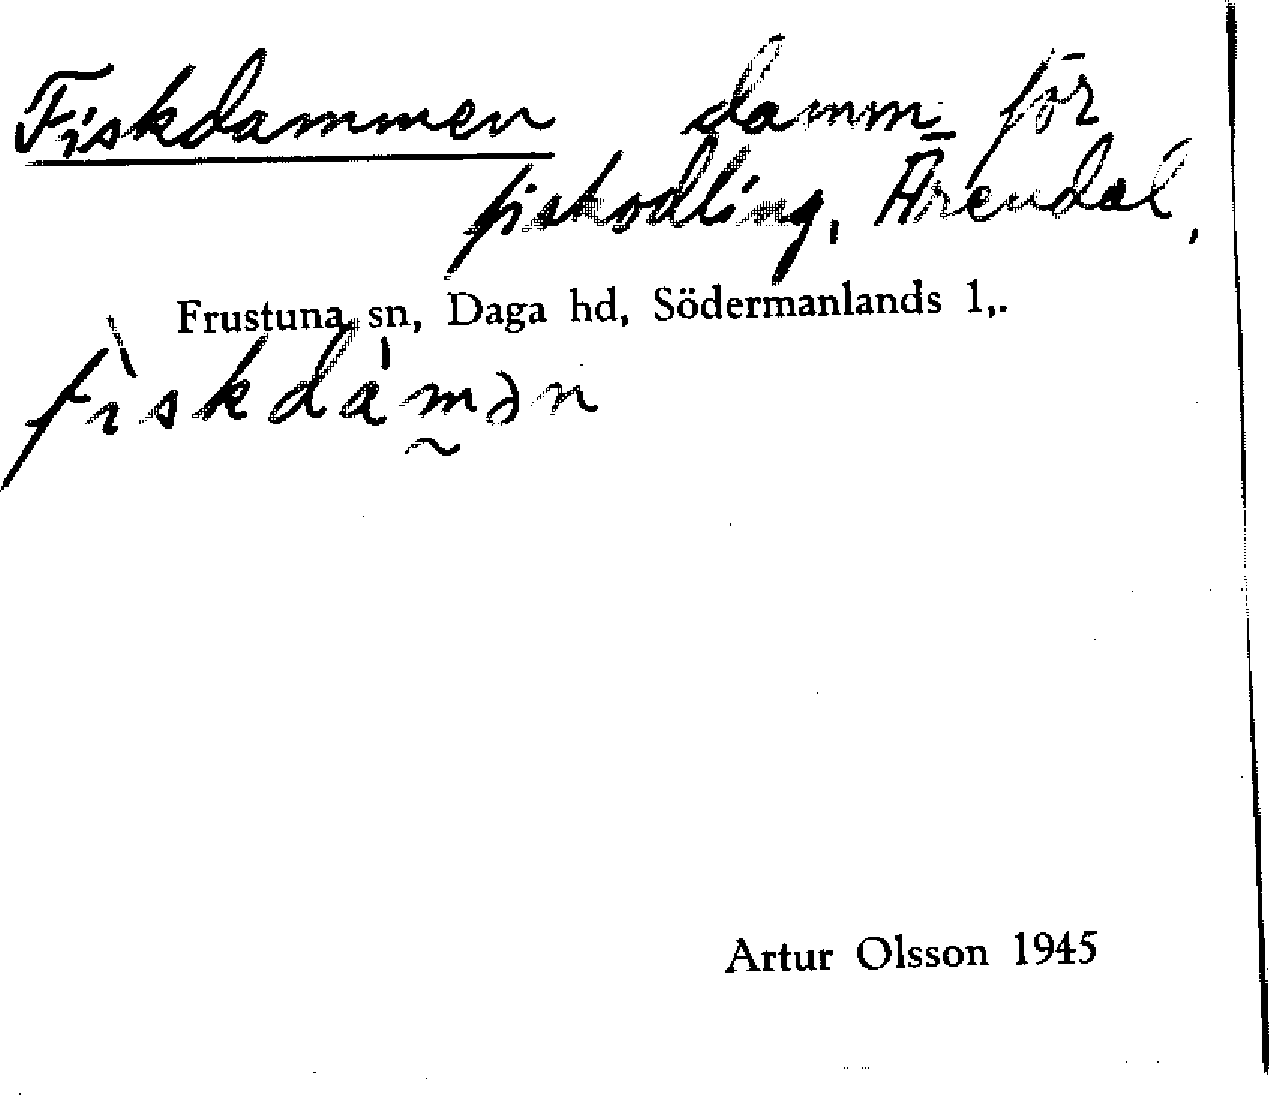 Fiskdammen damm för
fiskodling, Ärendal,
Frustuna sn, Daga hd, Södermanlands l,.
fìskdám̰ən
Artur Olsson 1945